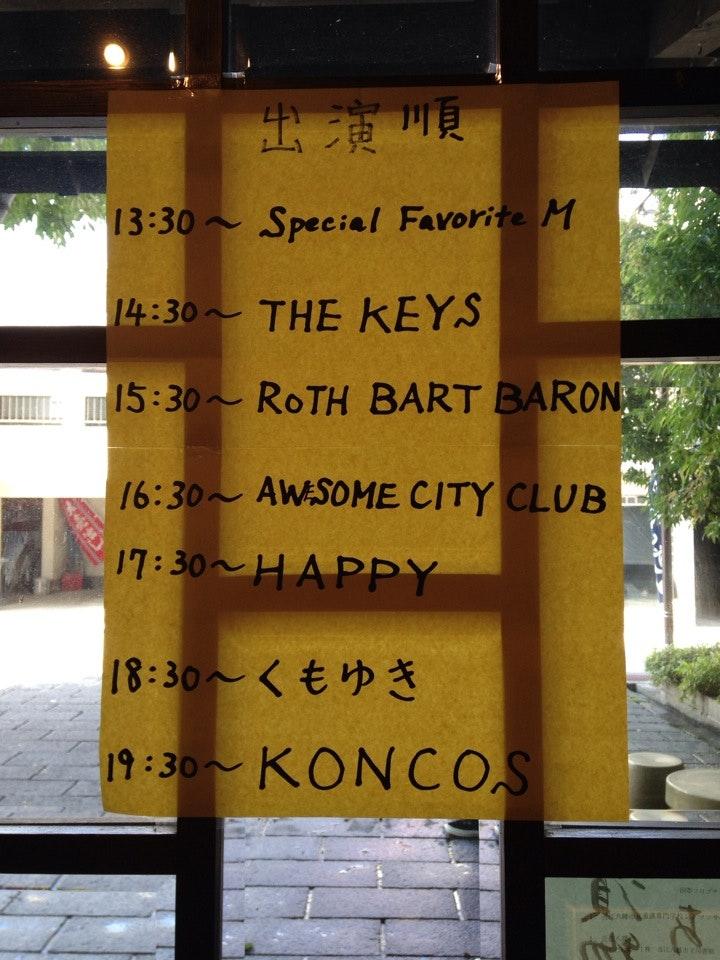 出演順
13:30～ Special Favorite M
14:30～ THE KEYS
15:30～ RoTH BART BARON
16:30～ AWESOME CITY CLUB
17:30～ HAPPY
18:30～ くもゆき
19:30～ KONCOS